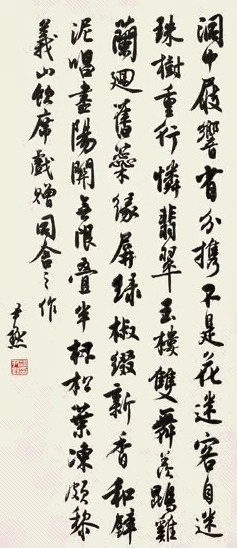 洞中屐響省分携不是花迷客自迷
珠樹重行憐翡翠玉樓雙舞羨鵾雞
蘭迴舊蘂緣屏緑椒綴新香和壁
泥唱盡陽關无限叠半杯松葉凍頗黎
義山飲席戲贈同舍之作
尹默